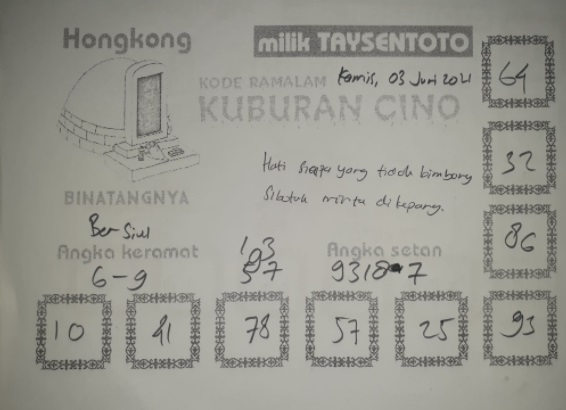 Hongkong
milik TAYSENTOTO
KODE RAMALAM Kamis, 03 Juni 2021
KUBURAN CINO
64
Hati siapa yang tidak bimbang
32
Sibotak minta dikepang.
BINATANGNYA
86
Angka keramat
193
57
Angka setan
6-9
9318-7
10
41
78
57
25
93